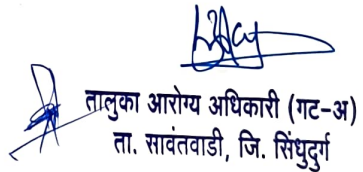 तालुका आरोग्य अधिकारी (गट-अ)
ता. सावंतवाडी, जि. सिंधुदुर्ग